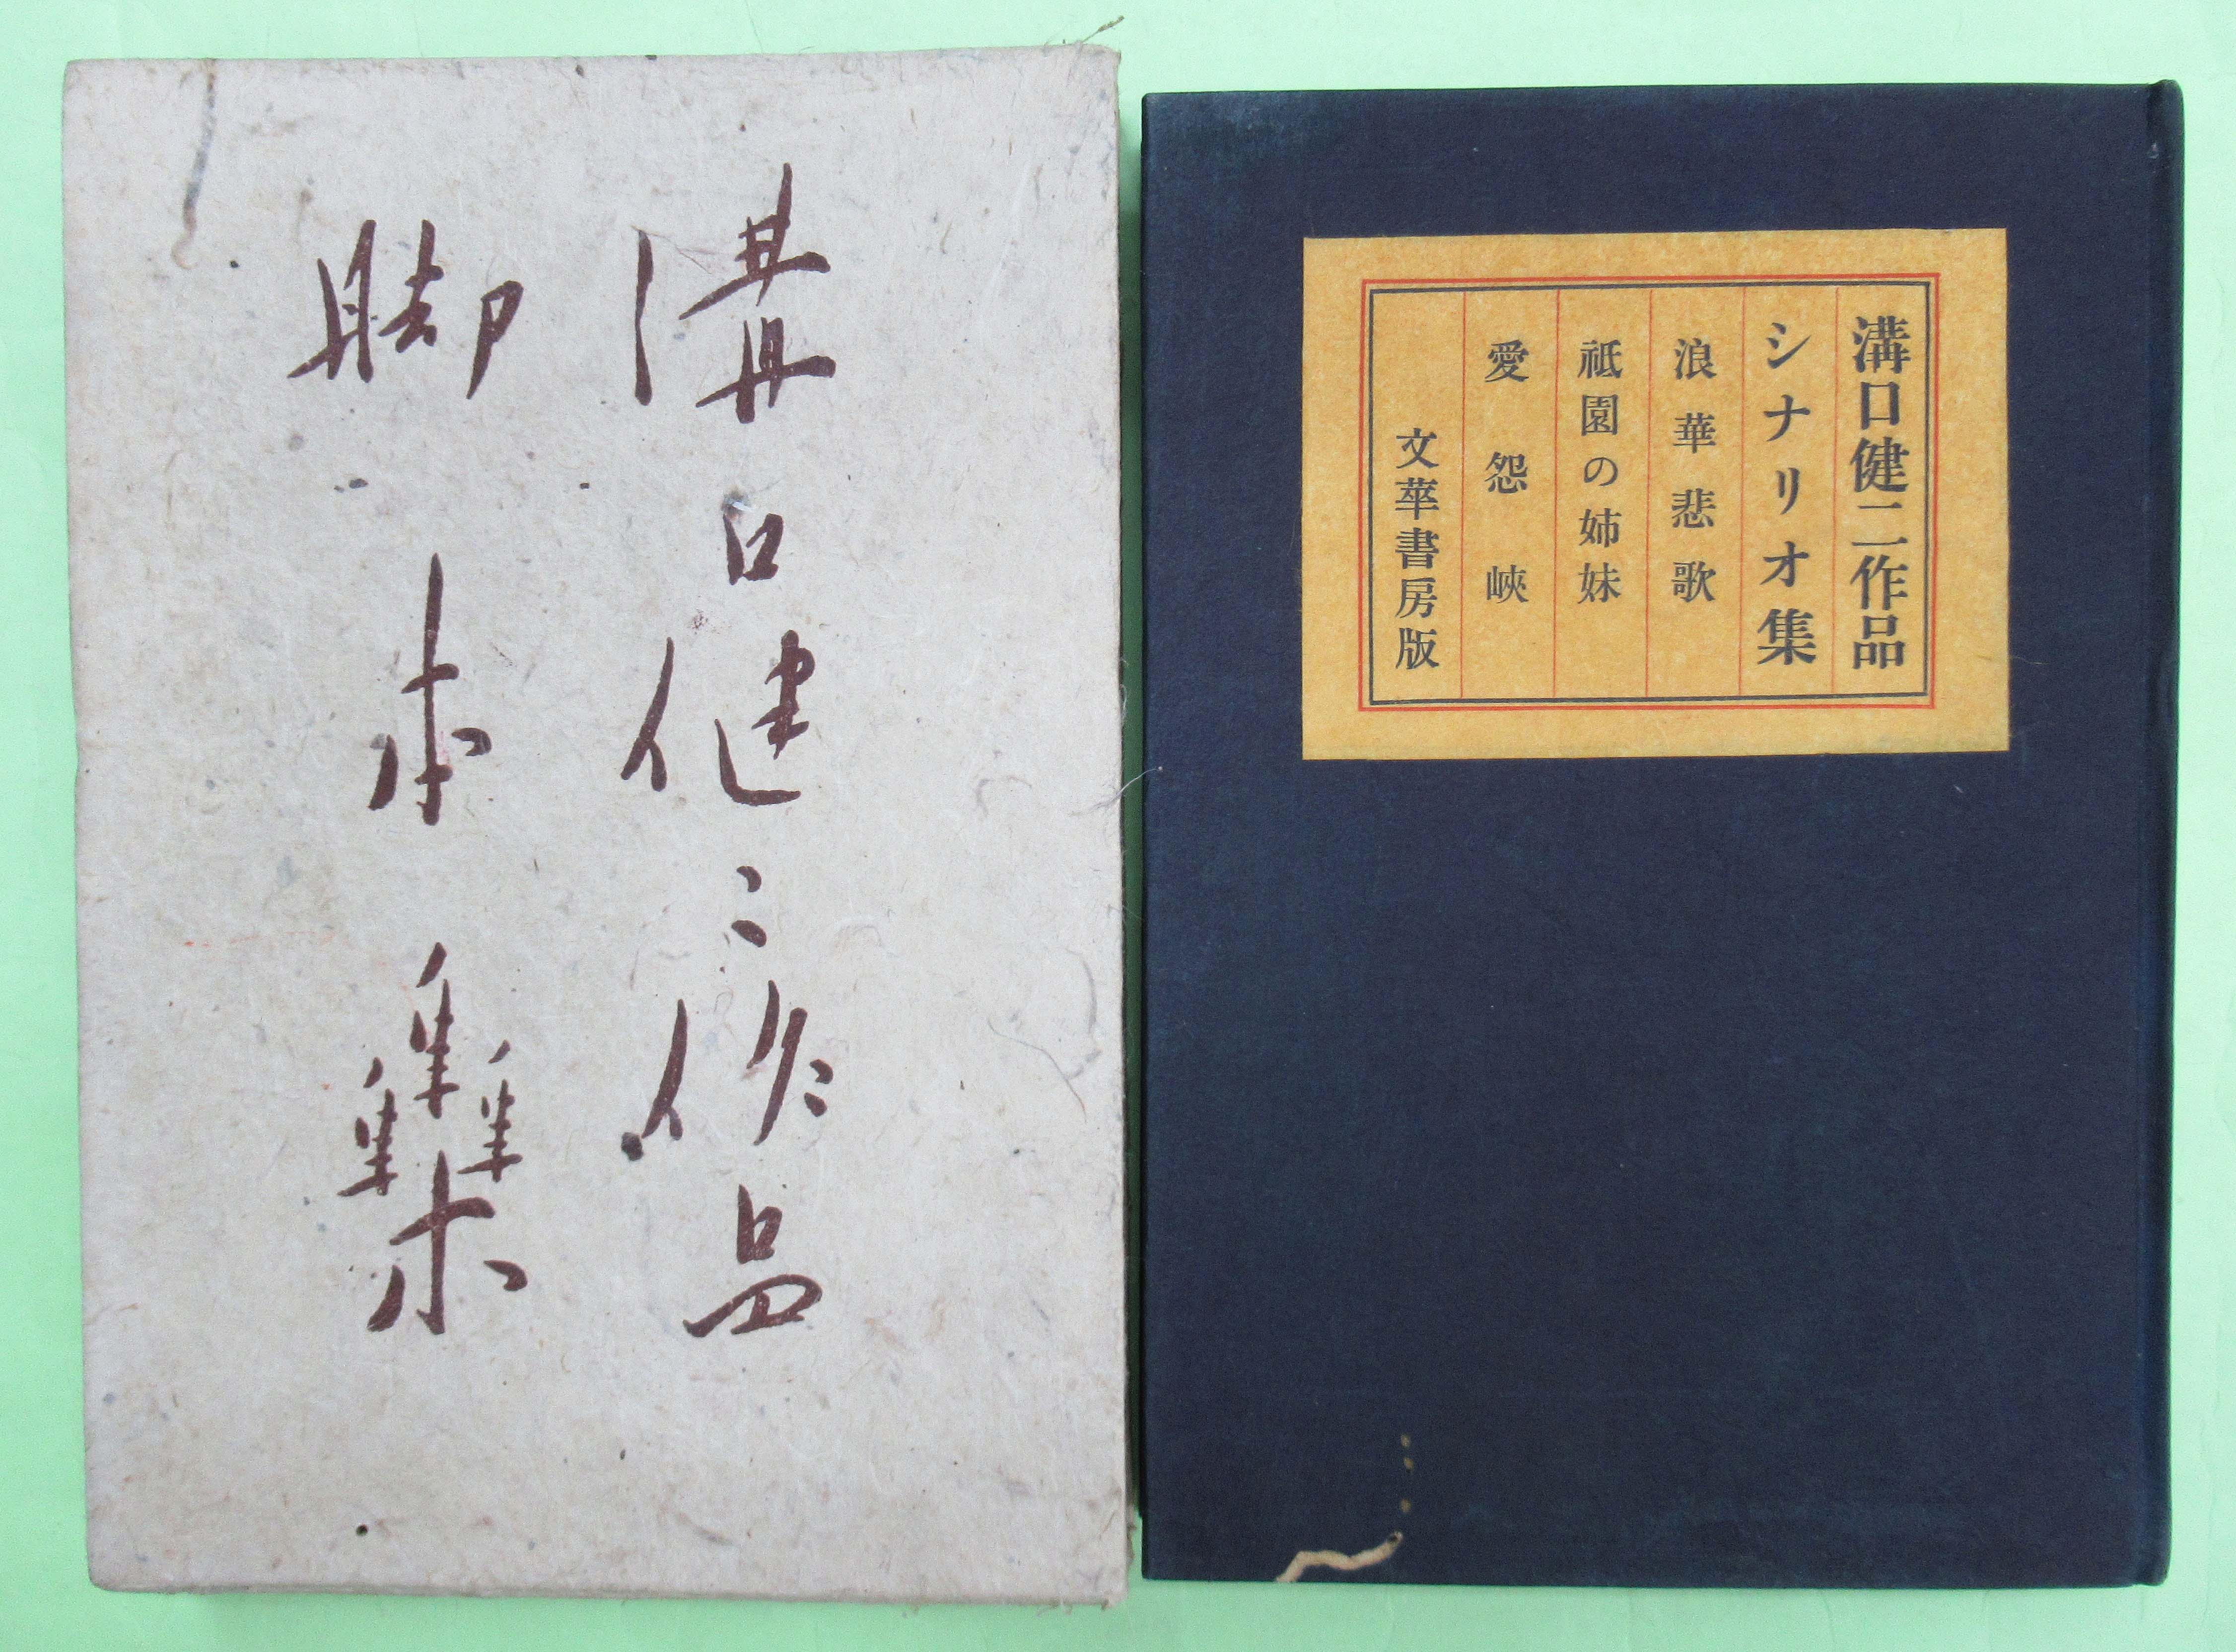 溝口健二作品
脚本雧
溝口健二作品
シナリオ集
浪華悲歌
祗園の姉妹
愛怨峽
文華書房版